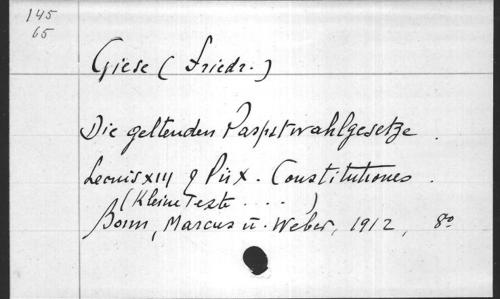 145
65
Giese (Friedr.)
Die geltenden Paspstwahlgesetze.
Leonis XIII & Pii X. Constitutiones.
(Kleine Texte ....)
Bonn, Marcus u. Weber, 1912, 8º